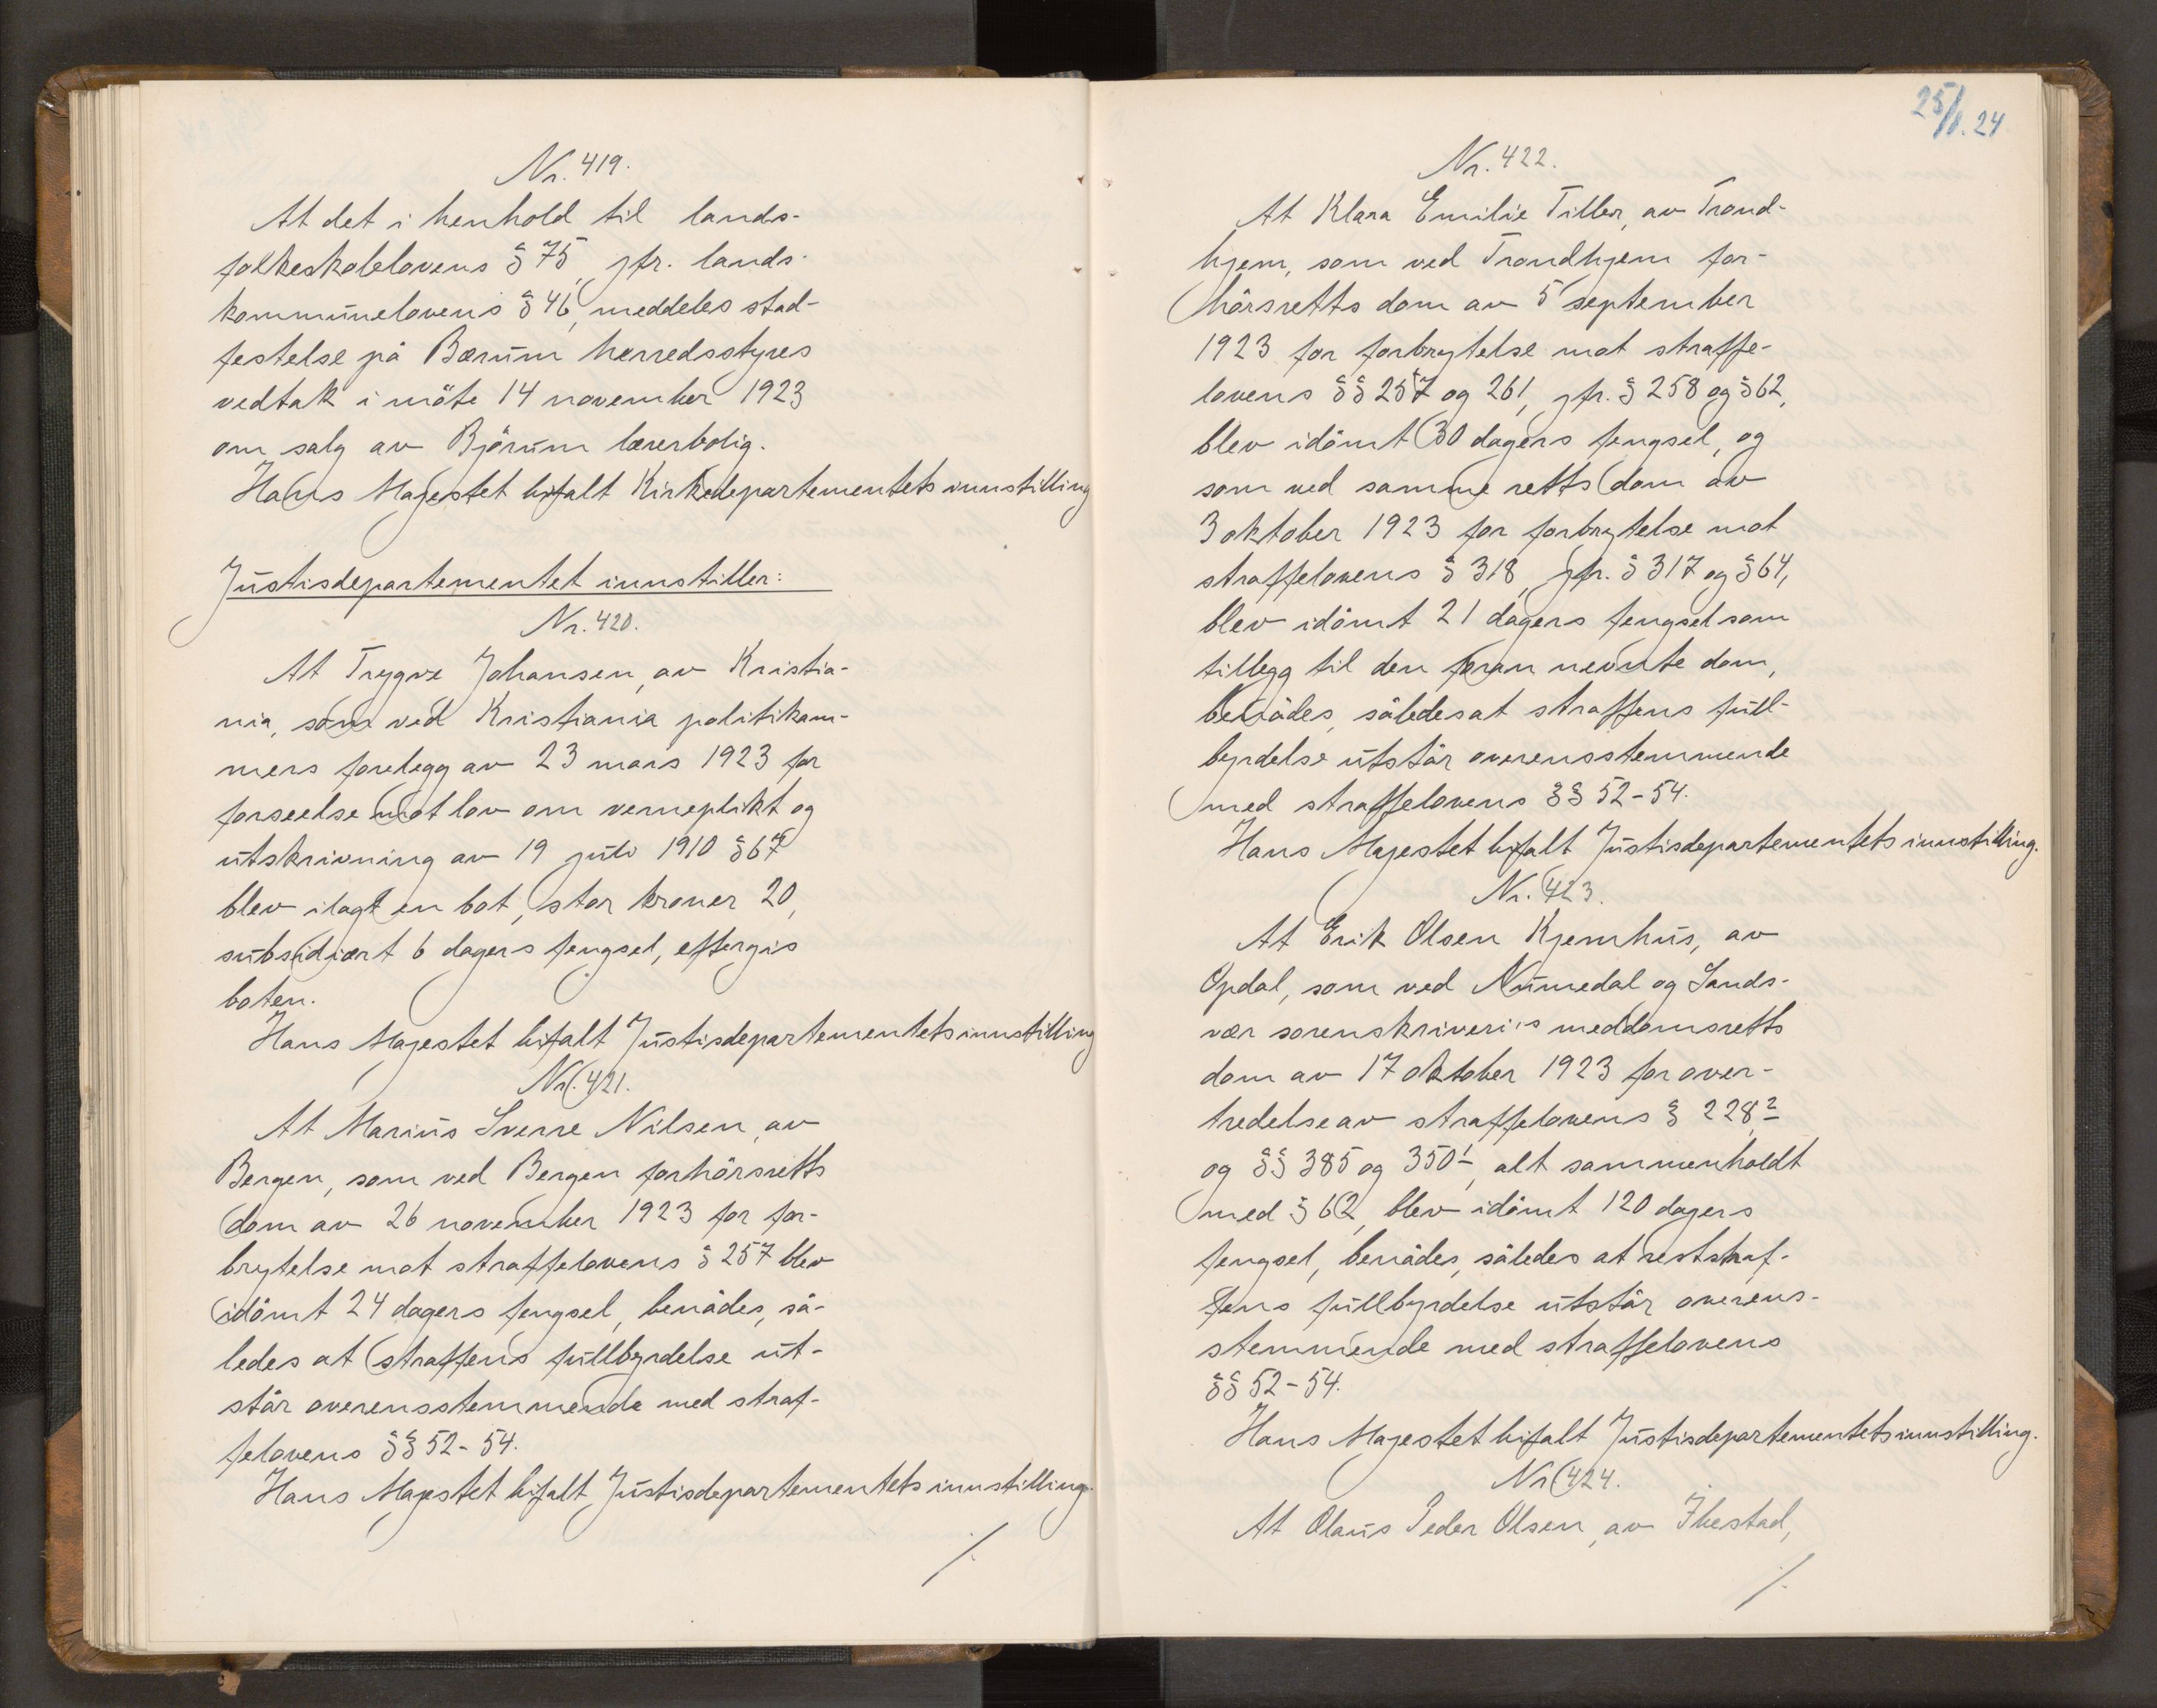 Nr. 419.
At det i henhold til lands-
folkeskolelovens § 75, jfr. lands-
kommunelovens § 46, meddeles stad-
festelse på Bærum herredsstyres
vedtak i möte 14 november 1923
om salg av Björum lærerbolig.
Hans Majestet bifalt Kirkedepartementets innstilling
Justisdepartementet innstiller:
Nr. 420.
At Trygve Johansen, av Kristia-
nia, som ved Kristiania politikam-
mers forelegg av 23 mars 1923 for
forseelse mot lov om verneplikt og
utskrivning av 19 juli 1910 § 67
blev ilagt en bot, stor kroner 20,
subsidiært 6 dagers fengsel, eftergis
boten.
Hans Majestet bifalt Justisdepartementets innstilling
Nr. 421.
At Marius Sverre Nilsen, av
Bergen, som ved Bergen forhörsretts
dom av 26 november 1923 for for-
brytelse mot straffelovens § 257 blev
idömt 24 dagers fengsel, benådes, så-
ledes at straffens fullbyrdelse ut-
står overensstemmende med straf-
felovens §§ 52-54.
Hans Majestet bifalt Justisdepartementets innstilling.
/.
25/1.24
Nr. 422.
At Klara Emilie Tiller, av Trond-
hjem, som ved Trondhjem for-
hörsretts dom av 5 september
1923 for forbrytelse mot straffe-
lovens §§ 257 og 261, jfr. § 258 og § 62,
blev idömt 30 dagers fengsel, og
som ved samme retts dom av
3 oktober 1923 for forbrytelse mot
straffelovens § 318, jfr. § 317 og § 64,
blev idömt 21 dagers fengsel som
tillegg til den foran nevnte dom,
benådes, således at straffens full-
byrdelse utstår overensstemmende
med straffelovens §§ 52-54.
Hans Majestet bifalt Justisdepartementets innstilling.
Nr. 423.
At Erik Olsen Kjemhus, av
Opdal, som ved Numedal og Sands-
vær sorenskriveri's meddomsretts
dom av 17 oktober 1923 for over-
tredelse av straffelovens § 228²
og §§ 385 og 350¹, alt sammenholdt
med § 62, blev idömt 120 dagers
fengsel, benådes, således at reststraf-
fens fullbyrdelse utstår overens-
stemmende med straffelovens
§§ 52-54.
Hans Majestet bifalt Justisdepartementets innstilling.
Nr. 424.
At Olaus Peder Olsen, av Ibestad,
/.